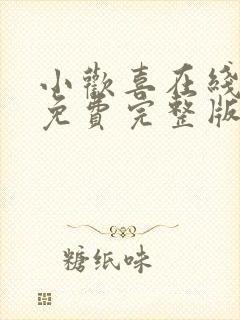 小歡喜在綫
免費完整版
糖纸味